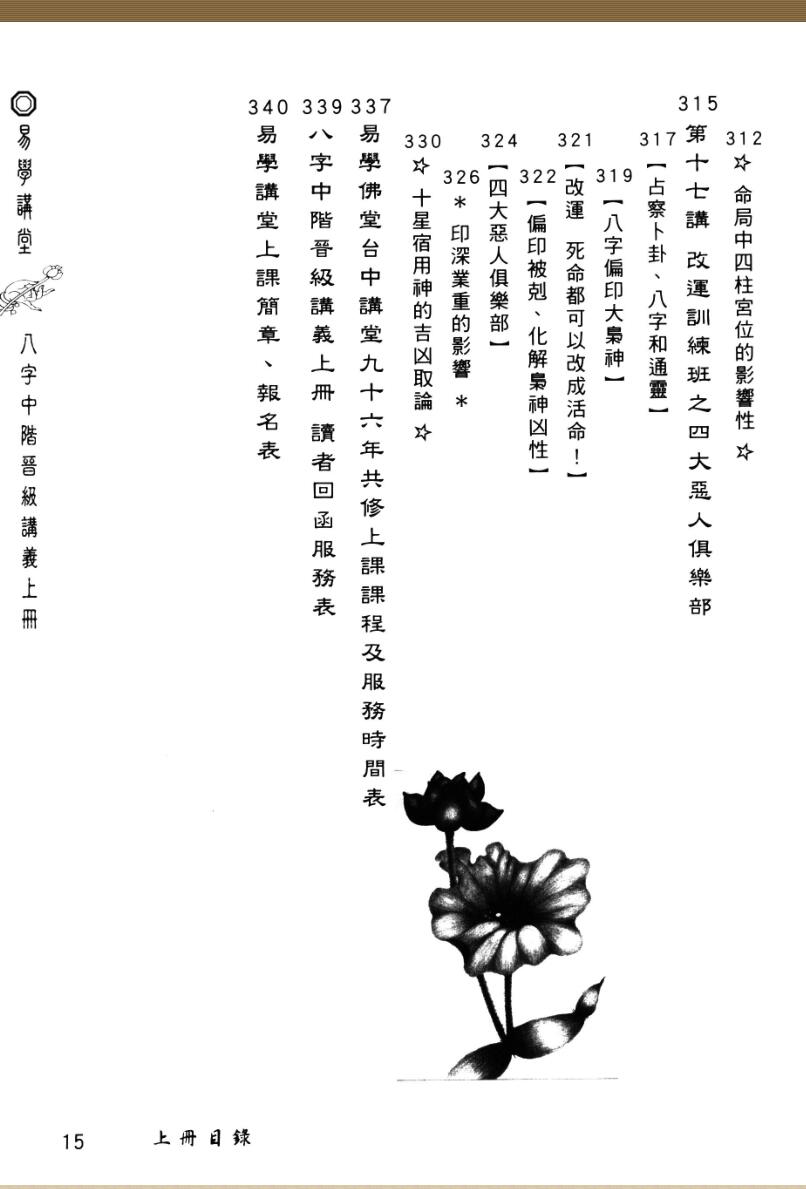 312 ☆ 命局中四柱宮位的影響性 ☆
315 第十七講 改運訓練班之四大惡人俱樂部
317 【占察卜卦、八字和通靈】
319 【八字偏印大梟神】
321 【改運 死命都可以改成活命！】
322 【偏印被剋、化解梟神凶性】
324 【四大惡人俱樂部】
326 ＊ 印深業重的影響 ＊
330 ☆ 十星宿用神的吉凶取論 ☆
337 易學佛堂台中講堂九十六年共修上課課程及服務時間表
339 八字中階晉級講義上冊 讀者回函服務表
340 易學講堂上課簡章、報名表
易學講堂 八字中階晉級講義上冊
上冊目錄
15